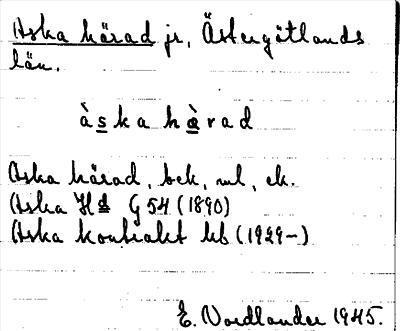 Aska härad jr, Östergötlands
län.
àska hàrad
Aska härad, bek, ml, ek.
Aska Hd G 54 (1890)
Aska kontrakt kb (1929–)
E. Nordlander 1945.